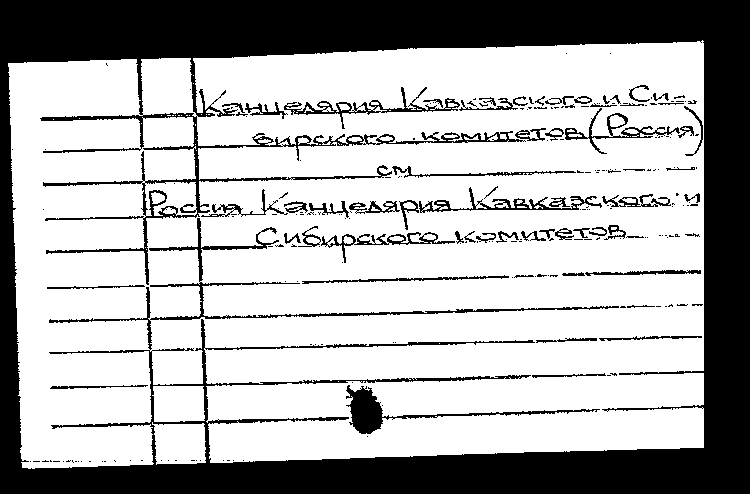 Канцелярия Кавказского и Си-
бирского комитетов (Россия)
см
Россия. Канцелярия Кавказского и
Сибирского комитетов